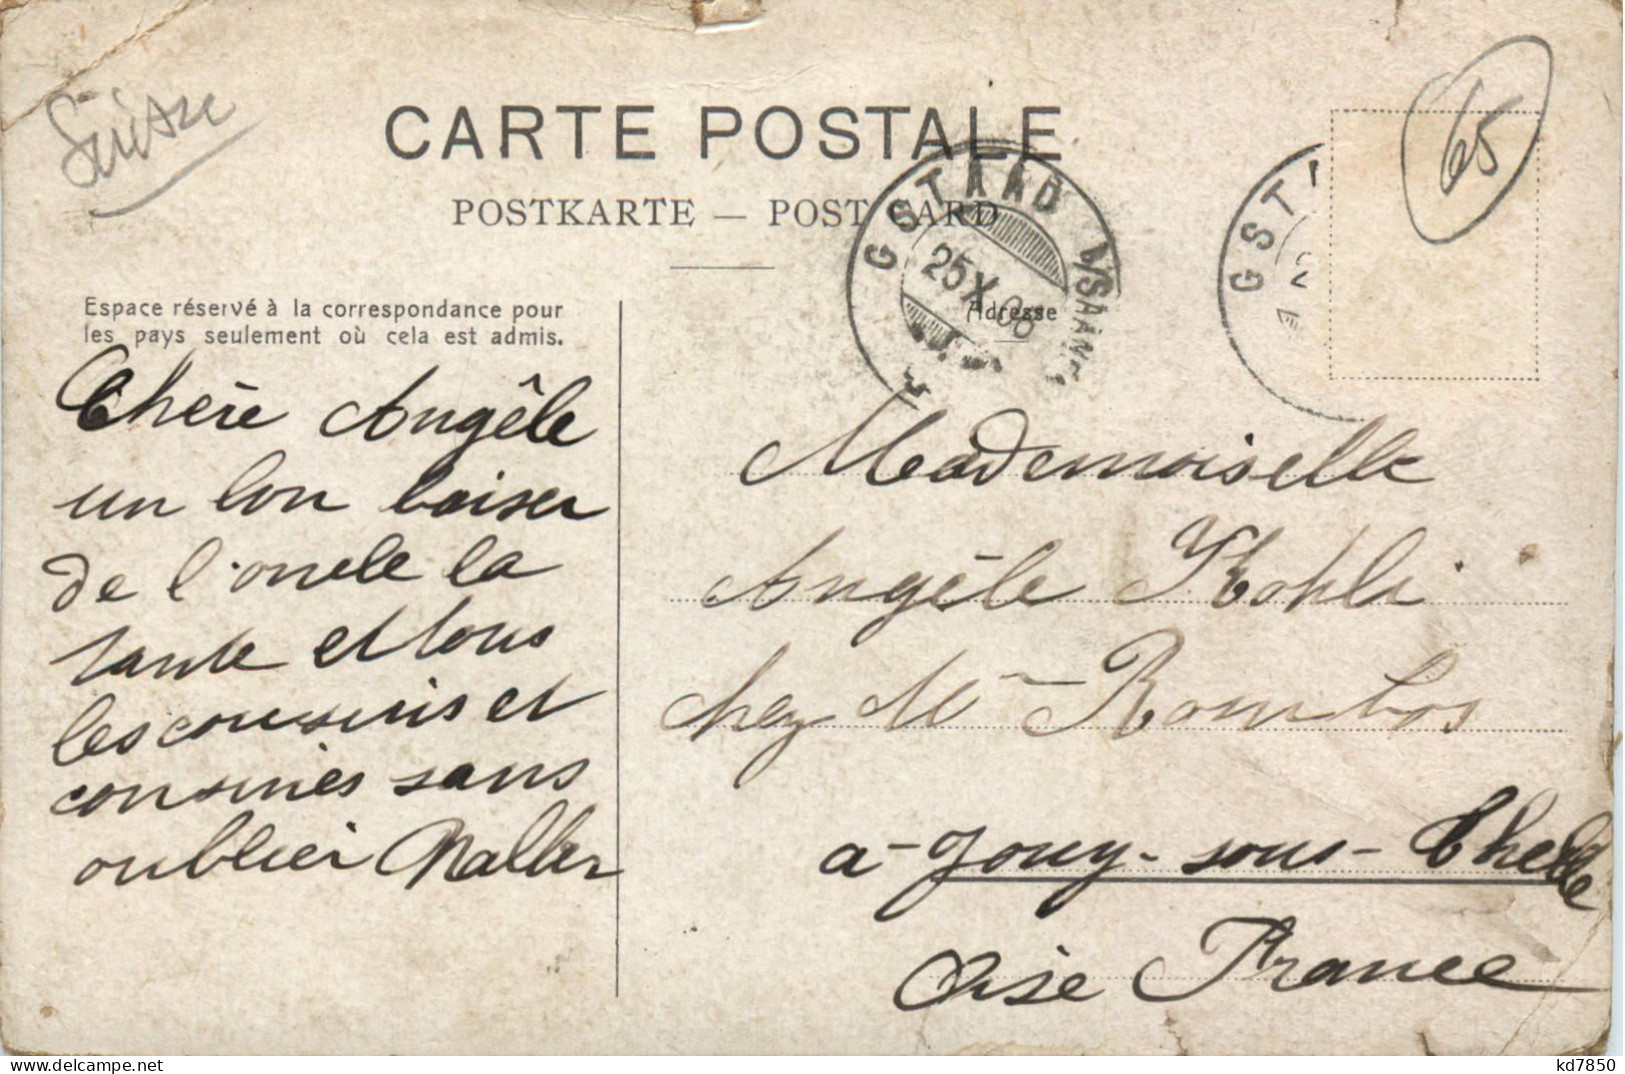 Suisse
65
CARTE POSTALE
POSTKARTE — POST CARD
GSTAAD b/SAANEN
25 X 08
GST
Espace réservé à la correspondance pour
les pays seulement où cela est admis.
Adresse
Chère Angêle
un bon baiser
de l'oncle la
tante et tous
les cousins et
cousines sans
oublier Walter
Mademoiselle
Angéle Kohli
chez Mr Rombos
a-Jouy-sous-Thelle
Oise France
kd7850